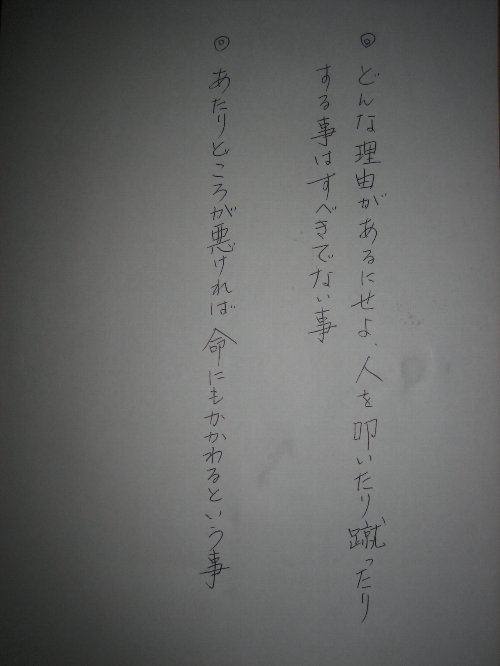 ◎どんな理由があるにせよ、人を叩いたり蹴ったり
する事はすべきでない事
◎あたりどころが悪ければ命にもかかわるという事